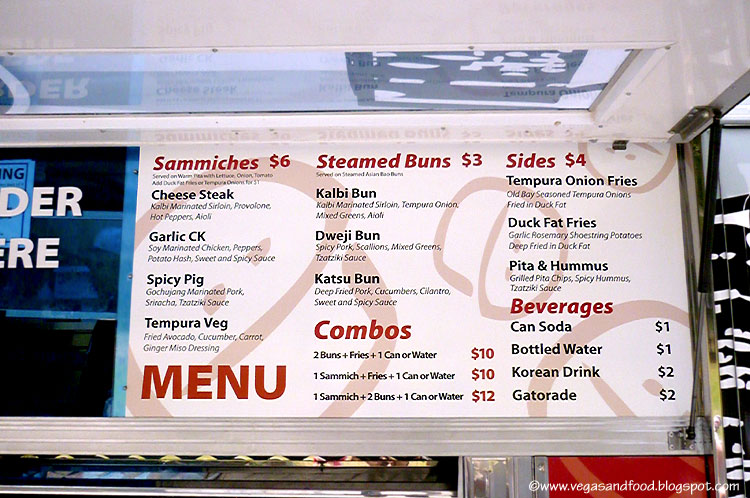 Sammiches $6
Served on Warm Pita with Lettuce, Onion, Tomato
Add Duck Fat Fries or Tempura Onions for $1
Cheese Steak
Kalbi Marinated Sirloin, Provolone,
Hot Peppers, Aioli
Garlic CK
Soy Marinated Chicken, Peppers,
Potato Hash, Sweet and Spicy Sauce
Spicy Pig
Gochujang Marinated Pork,
Sriracha, Tzatziki Sauce
Tempura Veg
Fried Avocado, Cucumber, Carrot,
Ginger Miso Dressing
MENU
Steamed Buns $3
Served on Steamed Asian Bao Buns
Kalbi Bun
Kalbi Marinated Sirloin, Tempura Onion,
Mixed Greens, Aioli
Dweji Bun
Spicy Pork, Scallions, Mixed Greens,
Tzatziki Sauce
Katsu Bun
Deep Fried Pork, Cucumbers, Cilantro,
Sweet and Spicy Sauce
Combos
2 Buns + Fries + 1 Can or Water $10
1 Sammich + Fries + 1 Can or Water $10
1 Sammich + 2 Buns + 1 Can or Water $12
Sides $4
Tempura Onion Fries
Old Bay Seasoned Tempura Onions
Fried in Duck Fat
Duck Fat Fries
Garlic Rosemary Shoestring Potatoes
Deep Fried in Duck Fat
Pita & Hummus
Grilled Pita Chips, Spicy Hummus,
Tzatziki Sauce
Beverages
Can Soda $1
Bottled Water $1
Korean Drink $2
Gatorade $2
ING
DER
ERE
©www.vegasandfood.blogspot.com